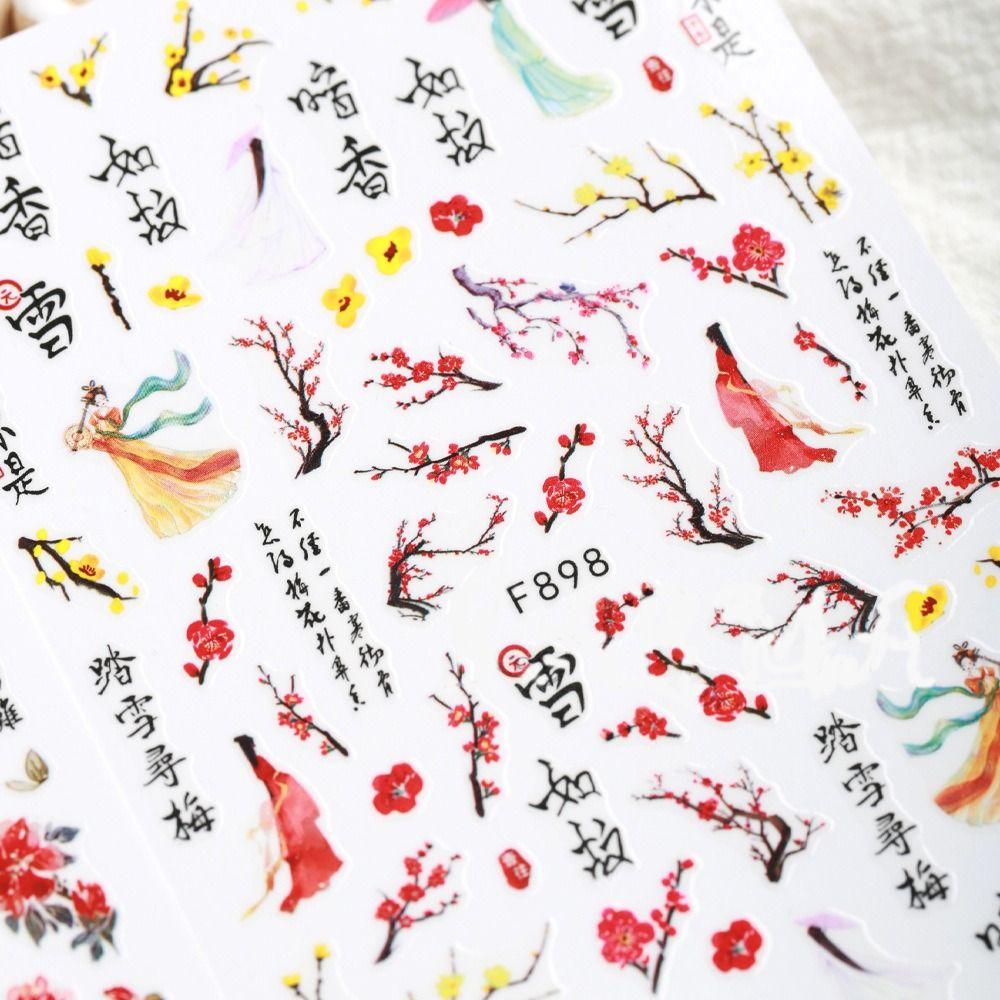 雪
是
暗香
如故
香
如故
元
雪
不经一番寒彻骨
怎得梅花扑鼻香
是
不经一番寒彻骨
怎得梅花扑鼻香
F898
元
雪
踏雪尋梅
如故
踏雪尋梅